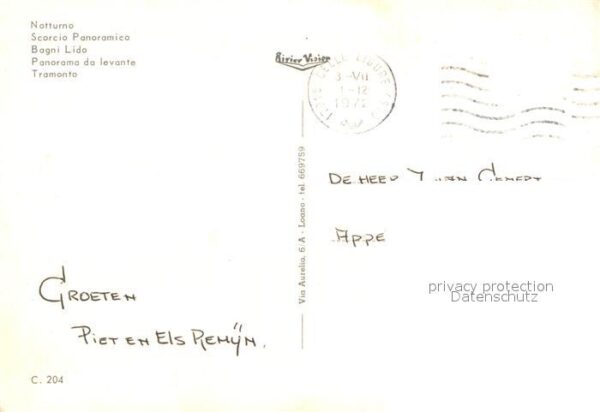 Notturno
Scorcio Panoramico
Bagni Lido
Panorama da levante
Tramonto
Rivier Vision
CELLE LIGURE
3-VII
1972
Via Aurelia, 6/A - Loano - tel. 669759
DE HEER
APPE
privacy protection
Datenschutz
GROETEN
PIET EN ELS REMIJN.
C. 204